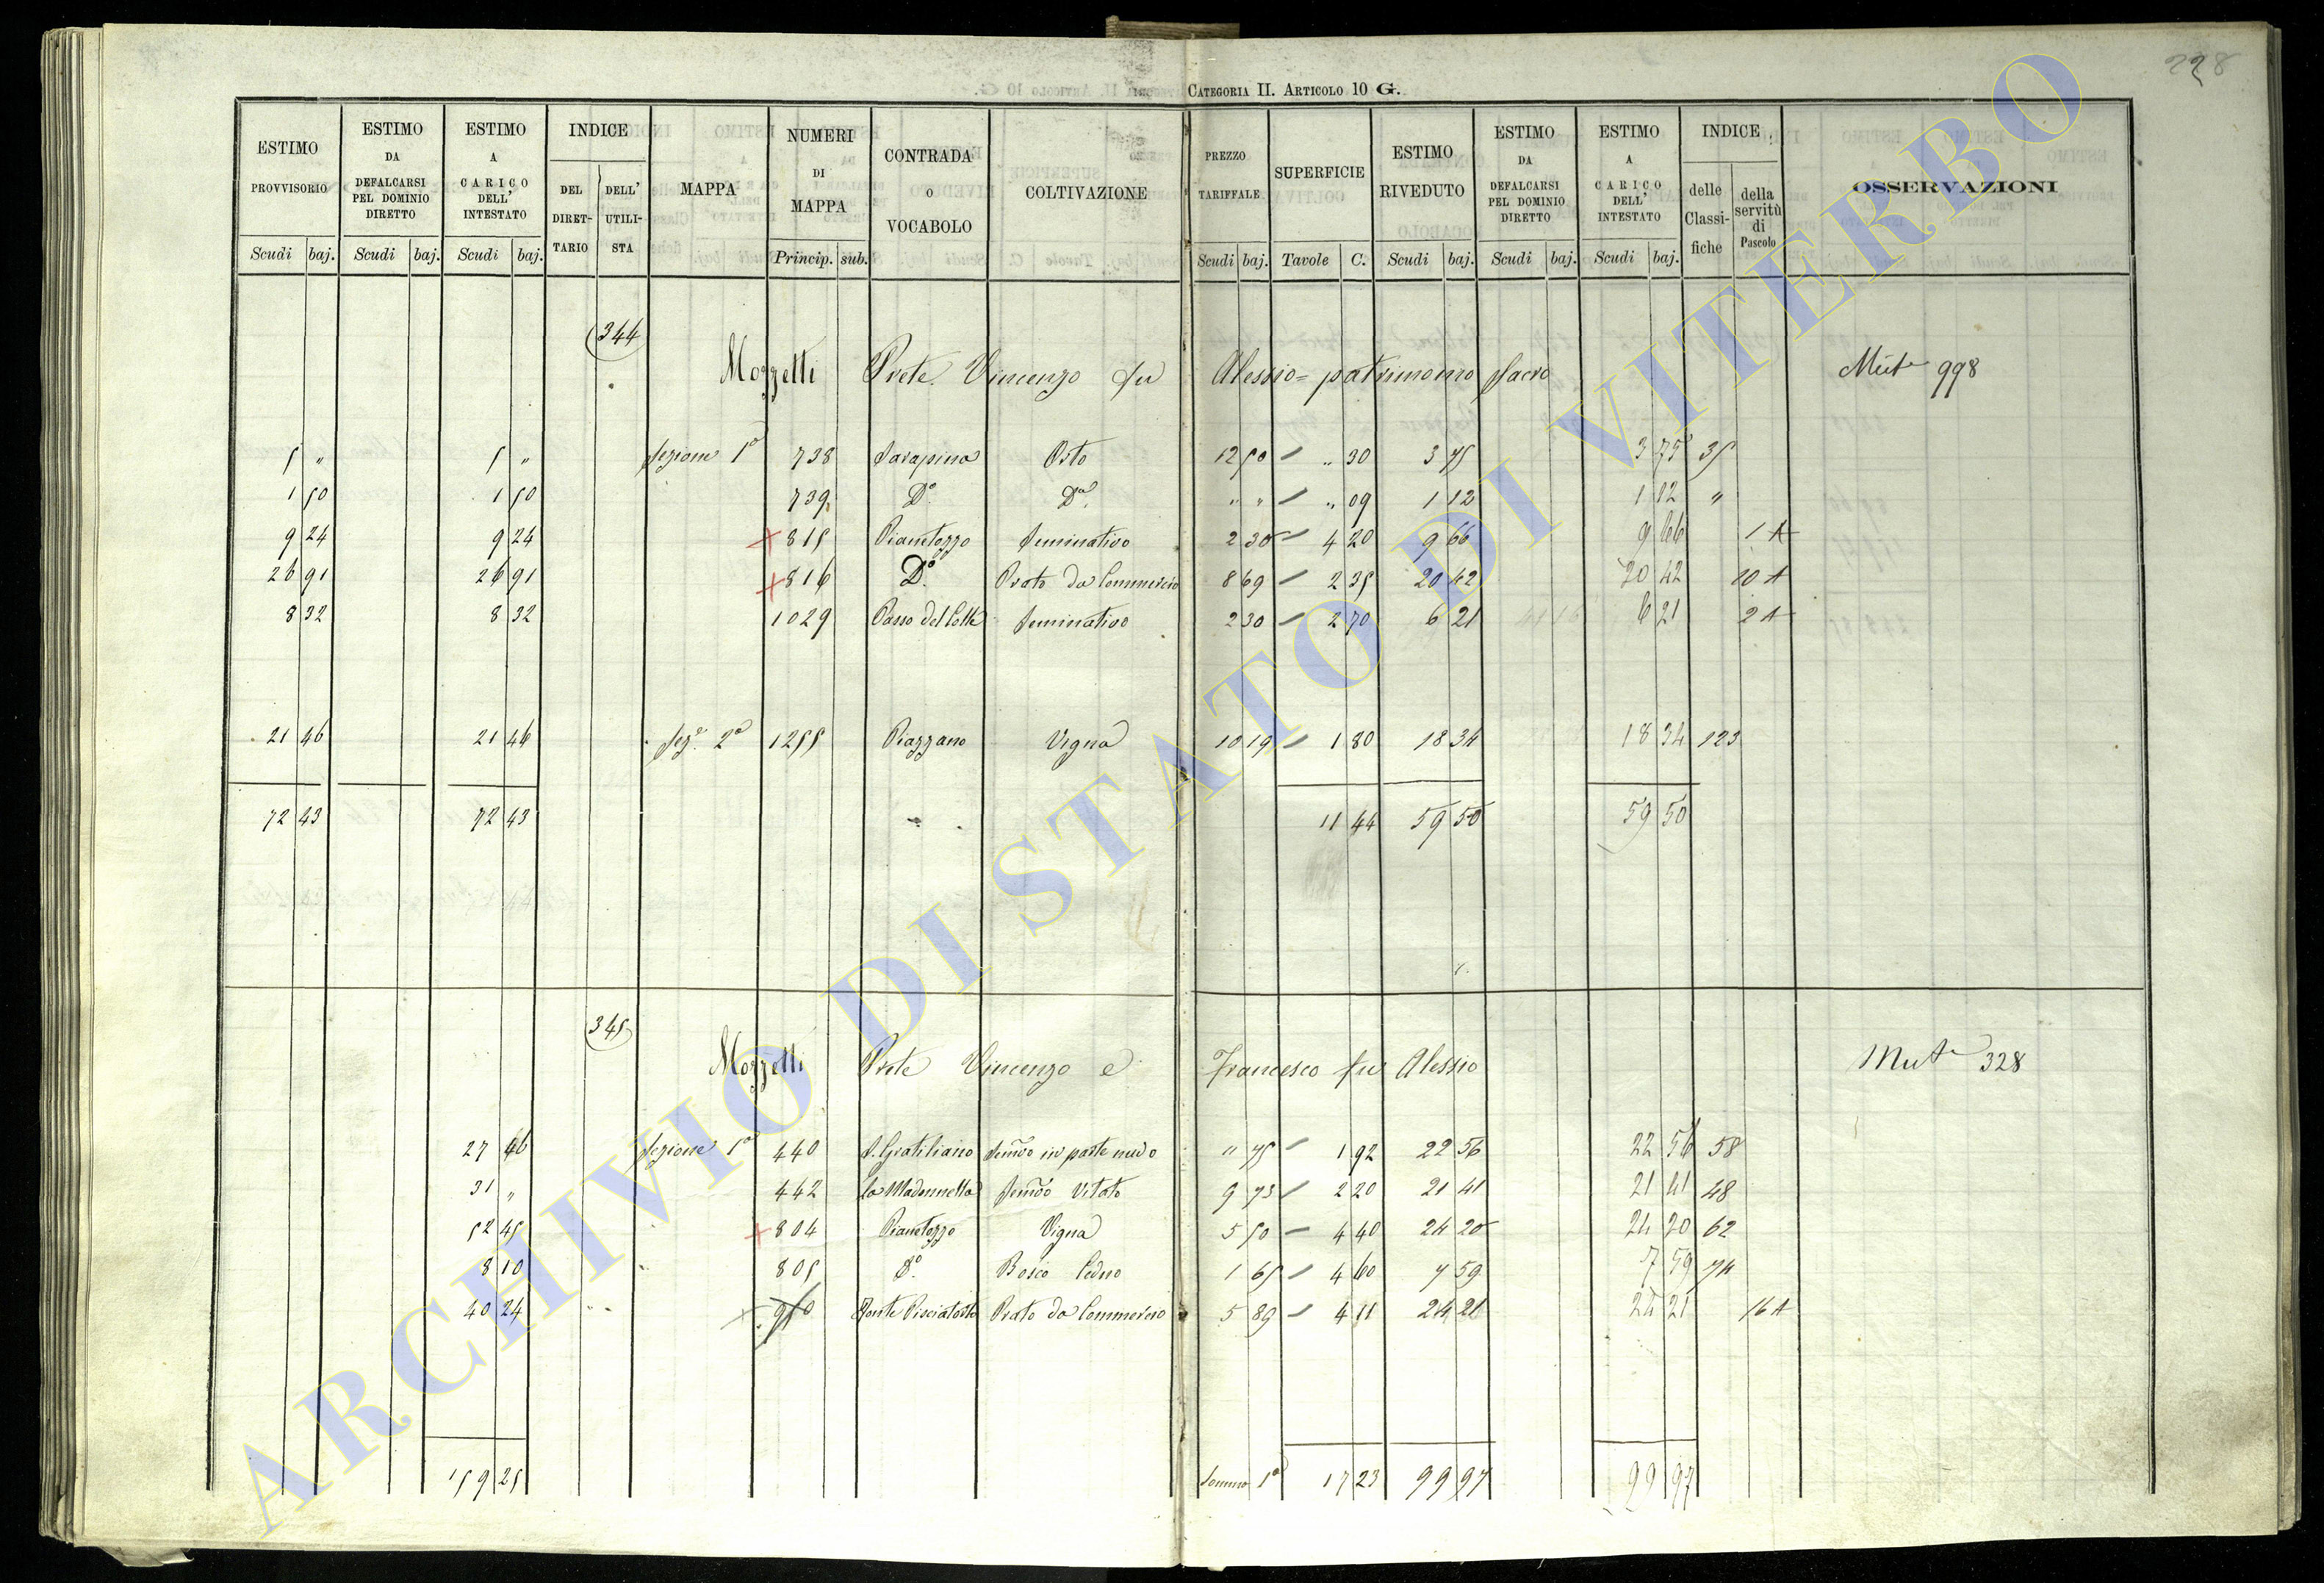 228
CATEGORIA II. ARTICOLO 10 G.
ESTIMO PROVVISORIO Scudi baj.
ESTIMO DA DEFALCARSI PEL DOMINIO DIRETTO Scudi baj.
ESTIMO A CARICO DELL' INTESTATO Scudi baj.
INDICE DEL DIRET-TARIO DELL' UTILI-STA
MAPPA
NUMERI DI MAPPA Princip. sub.
CONTRADA o VOCABOLO
COLTIVAZIONE
PREZZO TARIFFALE Scudi baj.
SUPERFICIE Tavole C.
ESTIMO RIVEDUTO Scudi baj.
ESTIMO DA DEFALCARSI PEL DOMINIO DIRETTO Scudi baj.
ESTIMO A CARICO DELL' INTESTATO Scudi baj.
INDICE delle Classi-fiche della servitù di Pascolo
OSSERVAZIONI
344
Mozzetti Prete Vincenzo fu Alessio = patrimonio sacro Mut.e 998
5 " 5 " Sezione 1a 738 Sarapina Orto 12 50 " 30 3 75 3 75 35
1 50 1 50 739 Do. Do. " " " 09 1 12 1 12 "
9 24 9 24 + 815 Pianetozzo Seminativo 2 30 4 20 9 66 9 66 1 A
26 91 26 91 + 816 Do. Prato da Commercio 8 69 2 35 20 42 20 42 10 A
8 32 8 32 1029 Passo del Colle Seminativo 2 30 2 70 6 21 6 21 2 A
21 46 21 46 Sez.e 2a 1255 Piazzano Vigna 10 19 1 80 18 34 18 34 123
72 43 72 43 11 44 59 50 59 50
345
Mozzetti Prete Vincenzo e Francesco fu Alessio Mut.e 328
27 46 Sezione 1a 440 S. Gratiliano Semvo in parte nudo " 75 1 92 22 56 22 56 58
31 " 442 la Madonnella Semvo Vitato 9 73 2 20 21 41 21 41 48
52 45 + 804 Pianetozzo Vigna 5 50 4 40 24 20 24 20 62
8 10 805 Do. Bosco Ceduo 1 65 4 60 7 59 7 59 74
40 24 950 Fonte Prato da Commercio 5 89 4 11 24 21 24 21 16 A
159 25 Somma 1a 17 23 99 97 99 97
ARCHIVIO DI STATO DI VITERBO